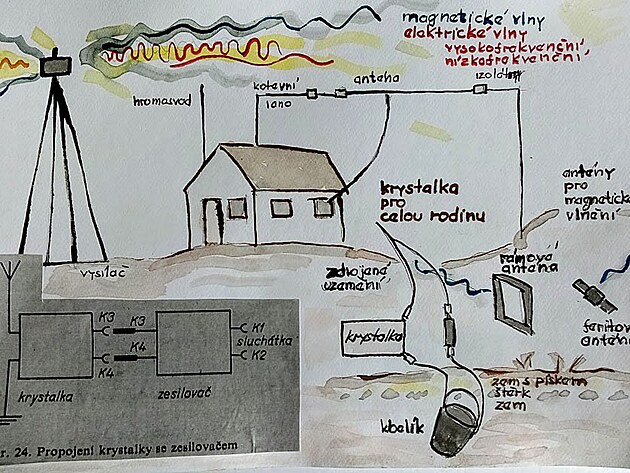 magnetické vlny
elektrické vlny
vysokofrekvenční,
nízkofrekvenční
hromosvod
kotevní
lano
anténa
vysílač
krystalka
pro
celou rodinu
antény
pro
magnetické
vlnění
zdvojené
uzemnění
rámová
anténa
feritová
anténa
krystalka
zem s pískem
štěrk
zem
kbelík
K3
K3
K4
K4
K1
sluchátka
K2
krystalka
zesilovač
r. 24. Propojení krystalky se zesilovačem